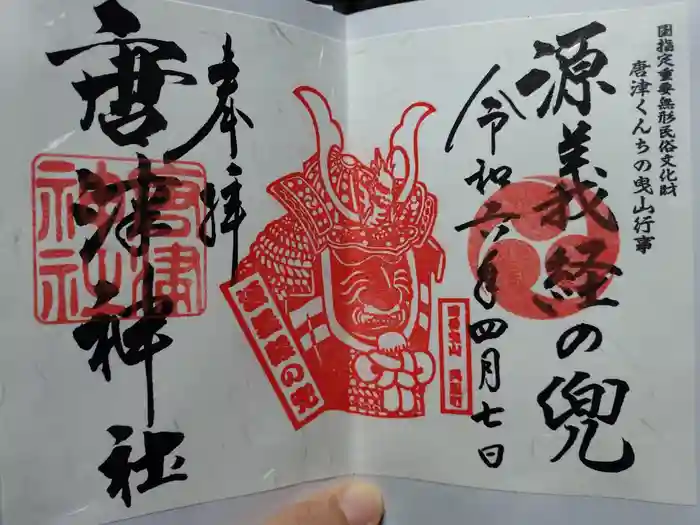 国指定重要無形民俗文化財
唐津くんちの曳山行事
源義経の兜
令和六年四月七日
奉拝
唐津神社
唐津
神社
源義経の兜